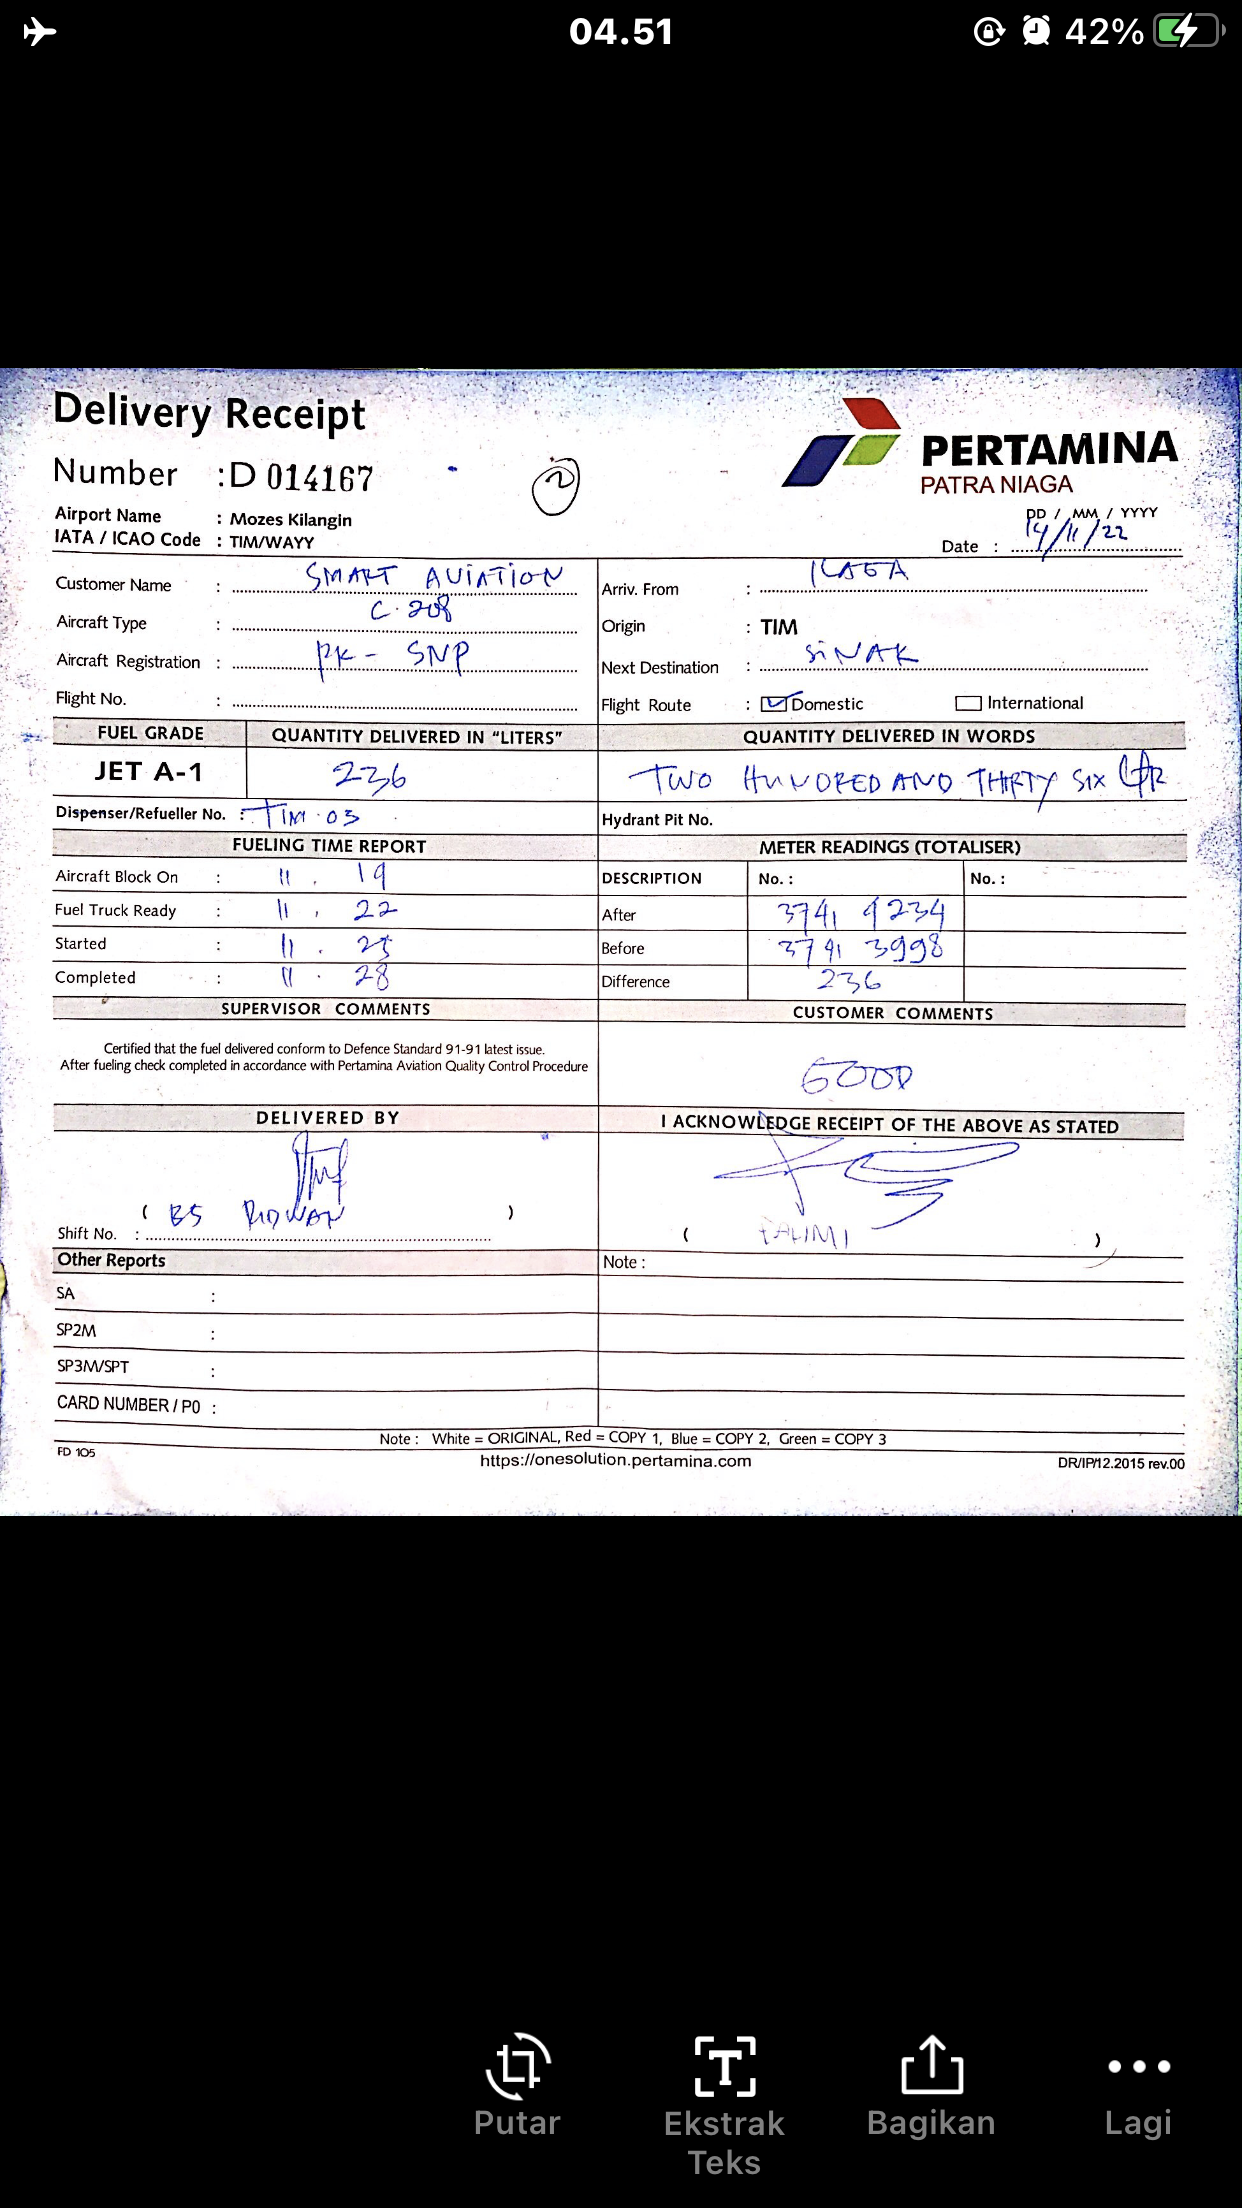 04.51
42%
Delivery Receipt
Number : D 014167
2
PERTAMINA
PATRA NIAGA
Airport Name : Mozes Kilangin
IATA / ICAO Code : TIM/WAYY
DD / MM / YYYY
Date : 14/11/22
Customer Name : SMART AVIATION
Aircraft Type : C.208
Aircraft Registration : PK - SNP
Flight No. :
Arriv. From : ILAGA
Origin : TIM
Next Destination : SiNAK
Flight Route : Domestic International
FUEL GRADE QUANTITY DELIVERED IN "LITERS" QUANTITY DELIVERED IN WORDS
JET A-1 236 TWO HUNDRED AND THIRTY SIX LTR
Dispenser/Refueller No. : TIM 03 Hydrant Pit No.
FUELING TIME REPORT
Aircraft Block On : 11 . 19
Fuel Truck Ready : 11 . 22
Started : 11 . 25
Completed : 11 . 28
METER READINGS (TOTALISER)
DESCRIPTION No. : No. :
After 3741 4234
Before 3741 3998
Difference 236
SUPERVISOR COMMENTS
Certified that the fuel delivered conform to Defence Standard 91-91 latest issue.
After fueling check completed in accordance with Pertamina Aviation Quality Control Procedure
CUSTOMER COMMENTS
GOOD
DELIVERED BY
( BS RIDWAN )
Shift No. :
I ACKNOWLEDGE RECEIPT OF THE ABOVE AS STATED
( FAHMI )
Other Reports
SA :
SP2M :
SP3M/SPT :
CARD NUMBER / PO :
Note :
Note : White = ORIGINAL, Red = COPY 1, Blue = COPY 2, Green = COPY 3
FD 105
https://onesolution.pertamina.com
DR/IP/12.2015 rev.00
Putar
Ekstrak
Teks
Bagikan
Lagi